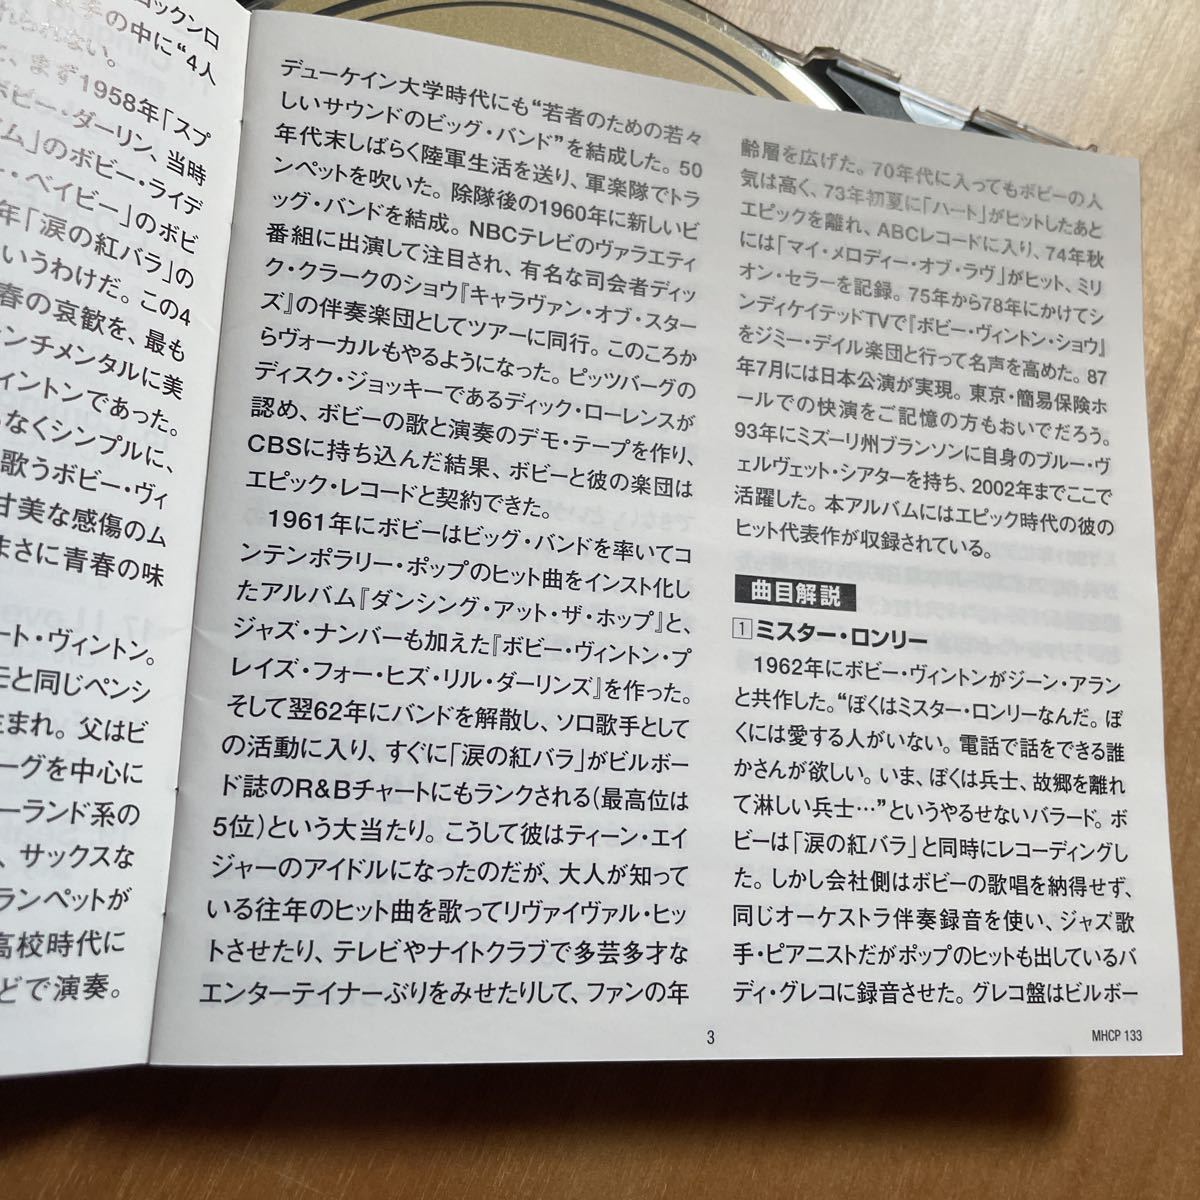 ロックンロ
手の中に“4人
られない。
、まず1958年「スプ
ボビー・ダーリン、当時
イム」のボビー・ライデ
ー・ベイビー」のボビ
年「涙の紅バラ」の
いうわけだ。この4
春の哀歓を、最も
ンチメンタルに美
ィントンであった。
なくシンプルに、
歌うボビー・ヴィ
甘美な感傷のム
まさに青春の味
ート・ヴィントン。
モと同じペンシ
生まれ。父はビ
ーグを中心に
ーランド系の
、サックスな
ランペットが
高校時代に
どで演奏。
デューケイン大学時代にも“若者のための若々
しいサウンドのビッグ・バンド”を結成した。50
年代末しばらく陸軍生活を送り、軍楽隊でトラ
ンペットを吹いた。除隊後の1960年に新しいビ
ッグ・バンドを結成。NBCテレビのヴァラエティ
番組に出演して注目され、有名な司会者ディッ
ク・クラークのショウ『キャラヴァン・オブ・スター
ズ』の伴奏楽団としてツアーに同行。このころか
らヴォーカルもやるようになった。ピッツバーグの
ディスク・ジョッキーであるディック・ローレンスが
認め、ボビーの歌と演奏のデモ・テープを作り、
CBSに持ち込んだ結果、ボビーと彼の楽団は
エピック・レコードと契約できた。
1961年にボビーはビッグ・バンドを率いてコ
ンテンポラリー・ポップのヒット曲をインスト化し
たアルバム『ダンシング・アット・ザ・ホップ』と、
ジャズ・ナンバーも加えた『ボビー・ヴィントン・プ
レイズ・フォー・ヒズ・リル・ダーリンズ』を作った。
そして翌62年にバンドを解散し、ソロ歌手として
の活動に入り、すぐに「涙の紅バラ」がビルボー
ド誌のR&Bチャートにもランクされる(最高位は
5位)という大当たり。こうして彼はティーン・エイ
ジャーのアイドルになったのだが、大人が知って
いる往年のヒット曲を歌ってリヴァイヴァル・ヒッ
トさせたり、テレビやナイトクラブで多芸多才な
エンターテイナーぶりをみせたりして、ファンの年
齢層を広げた。70年代に入ってもボビーの人
気は高く、73年初夏に「ハート」がヒットしたあと
エピックを離れ、ABCレコードに入り、74年秋
には「マイ・メロディー・オブ・ラヴ」がヒット、ミリ
オン・セラーを記録。75年から78年にかけてシ
ンディケイテッドTVで『ボビー・ヴィントン・ショウ』
をジミー・デイル楽団と行って名声を高めた。87
年7月には日本公演が実現。東京・簡易保険ホ
ールでの快演をご記憶の方もおいでだろう。
93年にミズーリ州ブランソンに自身のブルー・ヴ
ェルヴェット・シアターを持ち、2002年までここで
活躍した。本アルバムにはエピック時代の彼の
ヒット代表作が収録されている。
曲目解説
1 ミスター・ロンリー
1962年にボビー・ヴィントンがジーン・アラン
と共作した。“ぼくはミスター・ロンリーなんだ。ぼ
くには愛する人がいない。電話で話をできる誰
かさんが欲しい。いま、ぼくは兵士、故郷を離れ
て淋しい兵士…”というやるせないバラード。ボ
ビーは「涙の紅バラ」と同時にレコーディングし
た。しかし会社側はボビーの歌唱を納得せず、
同じオーケストラ伴奏録音を使い、ジャズ歌
手・ピアニストだがポップのヒットも出しているバ
ディ・グレコに録音させた。グレコ盤はビルボー
3
MHCP 133